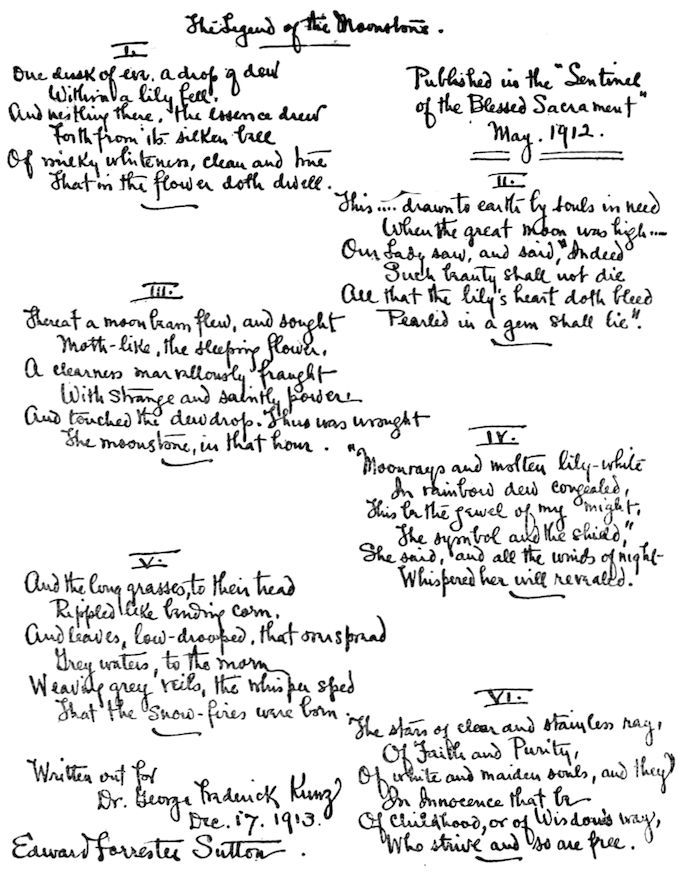 The Legend of the Moonstone.
I.
One dusk of eve, a drop of dew
Within a lily fell.
And nestling there, the essence drew
Forth from its silken bell
Of milky whiteness, clean and true
That in the flower doth dwell.
Published in the "Sentinel
of the Blessed Sacrament"
May. 1912.
II.
This .... drawn to earth by souls in need
When the great moon was high ....
Our Lady saw, and said, "Indeed
Such beauty shall not die
All that the lily's heart doth bleed
Pearled in a gem shall lie".
III.
Thereat a moonbeam flew, and sought
Moth-like, the sleeping flower,
A clearness marvellously fraught
With strange and saintly power:
And touched the dewdrop. Thus was wrought
The moonstone, in that hour.
IV.
"Moonrays and molten lily-white
In rainbow dew congealed,
This be the jewel of my might,
The symbol and the shield,"
She said, and all the winds of night
Whispered her will revealed.
V.
And the long grasses, to their tread
Rippled like bending corn,
And leaves, low-drooped, that overspread
Grey waters, to the morn
Weaving grey veils, the whisper sped
That the snow-fires were born.
VI.
The stars of clear and stainless ray,
Of Faith and Purity,
Of white and maiden souls, and they
In Innocence that be
Of childhood, or of Wisdom's way,
Who strive and so are free.
Written out for
Dr. George Frederick Kunz
Dec. 17. 1913.
Edward Forrester Sutton.